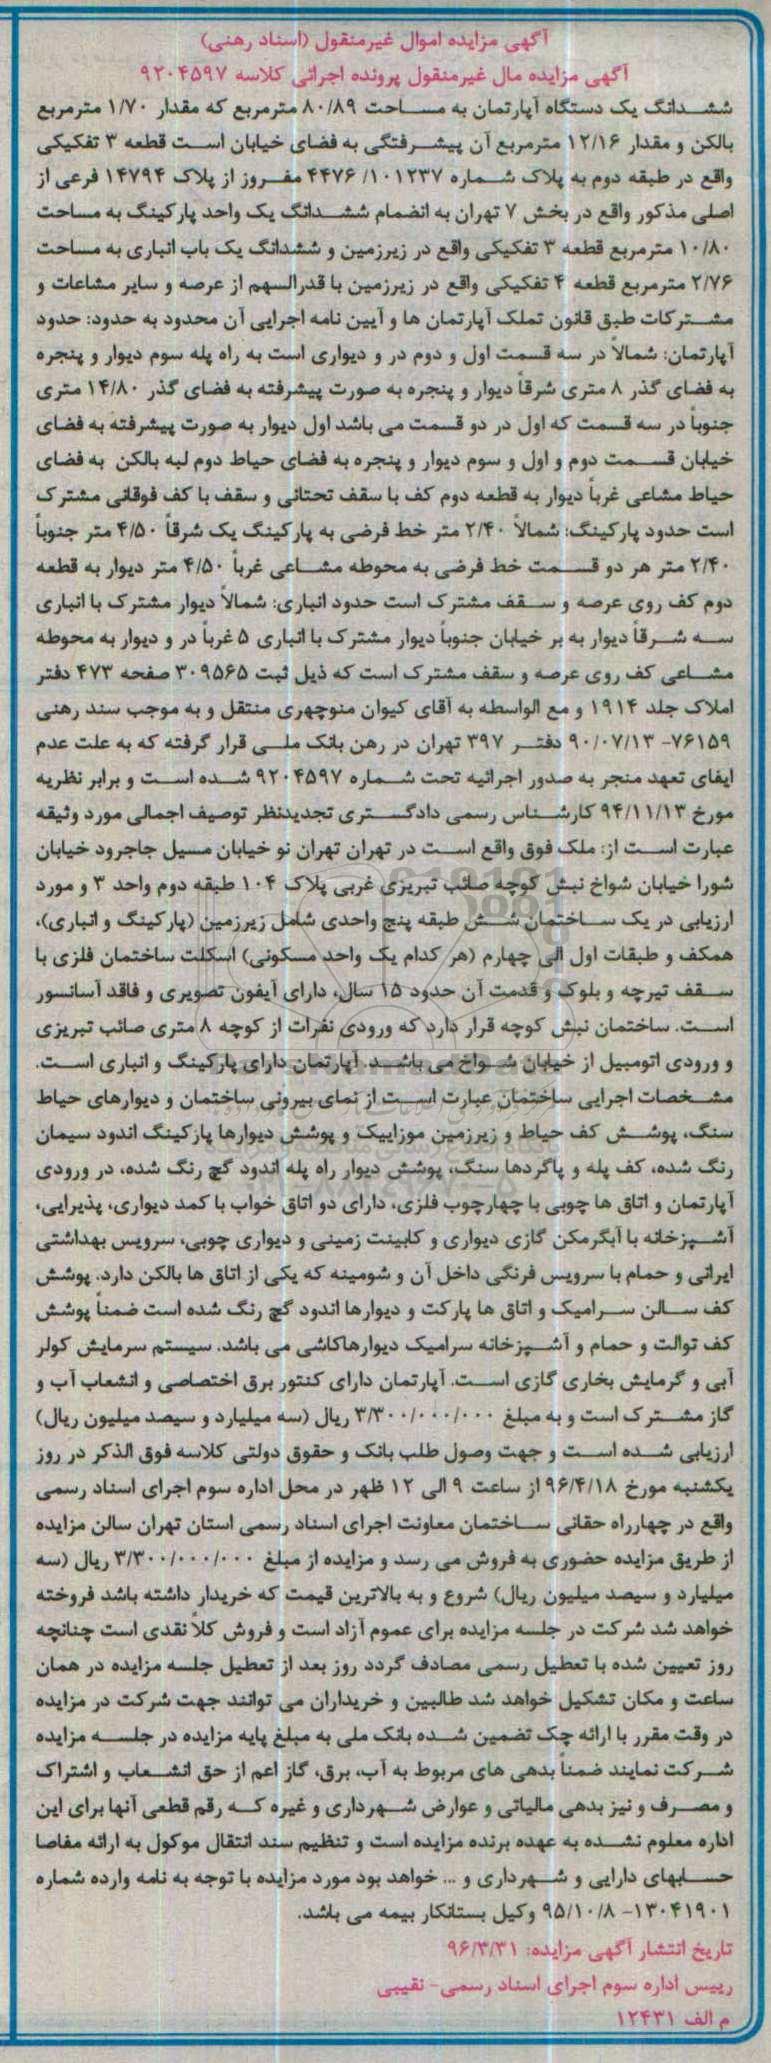 آگهی مزایده اموال غیرمنقول (اسناد رهنی)
آگهی مزایده مال غیرمنقول پرونده اجرائی کلاسه ۹۲۰۴۵۹۷
ششدانگ یک دستگاه آپارتمان به مساحت ۸۰/۸۹ مترمربع که مقدار ۱/۷۰ مترمربع
بالکن و مقدار ۱۲/۱۶ مترمربع آن پیشرفتگی به فضای خیابان است قطعه ۳ تفکیکی
واقع در طبقه دوم به پلاک شماره ۴۴۷۶/۱۰۱۲۳۷ مفروز از پلاک ۱۴۷۹۴ فرعی از
اصلی مذکور واقع در بخش ۷ تهران به انضمام ششدانگ یک واحد پارکینگ به مساحت
۱۰/۸۰ مترمربع قطعه ۳ تفکیکی واقع در زیرزمین و ششدانگ یک باب انباری به مساحت
۲/۷۶ مترمربع قطعه ۴ تفکیکی واقع در زیرزمین با قدرالسهم از عرصه و سایر مشاعات و
مشترکات طبق قانون تملک آپارتمان ها و آیین نامه اجرایی آن محدود به حدود: حدود
آپارتمان: شمالاً در سه قسمت اول و دوم در و دیواری است به راه پله سوم دیوار و پنجره
به فضای گذر ۸ متری شرقاً دیوار و پنجره به صورت پیشرفته به فضای گذر ۱۴/۸۰ متری
جنوباً در سه قسمت که اول در دو قسمت می باشد اول دیوار به صورت پیشرفته به فضای
خیابان قسمت دوم و اول و سوم دیوار و پنجره به فضای حیاط دوم لبه بالکن به فضای
حیاط مشاعی غرباً دیوار به قطعه دوم کف با سقف تحتانی و سقف با کف فوقانی مشترک
است حدود پارکینگ: شمالاً ۲/۴۰ متر خط فرضی به پارکینگ یک شرقاً ۴/۵۰ متر جنوباً
۲/۴۰ متر هر دو قسمت خط فرضی به محوطه مشاعی غرباً ۴/۵۰ متر دیوار به قطعه
دوم کف روی عرصه و سقف مشترک است حدود انباری: شمالاً دیوار مشترک با انباری
سه شرقاً دیوار به بر خیابان جنوباً دیوار مشترک با انباری ۵ غرباً در و دیوار به محوطه
مشاعی کف روی عرصه و سقف مشترک است که ذیل ثبت ۳۰۹۵۶۵ صفحه ۴۷۳ دفتر
املاک جلد ۱۹۱۴ و مع الواسطه به آقای کیوان منوچهری منتقل و به موجب سند رهنی
۷۶۱۵۹- ۹۰/۰۷/۱۳ دفتر ۳۹۷ تهران در رهن بانک ملی قرار گرفته که به علت عدم
ایفای تعهد منجر به صدور اجرائیه تحت شماره ۹۲۰۴۵۹۷ شده است و برابر نظریه
مورخ ۹۴/۱۱/۱۳ کارشناس رسمی دادگستری تجدیدنظر توصیف اجمالی مورد وثیقه
عبارت است از: ملک فوق واقع است در تهران تهران نو خیابان مسیل جاجرود خیابان
شورا خیابان شواخ نبش کوچه صائب تبریزی غربی پلاک ۱۰۴ طبقه دوم واحد ۳ و مورد
ارزیابی در یک ساختمان شش طبقه پنج واحدی شامل زیرزمین (پارکینگ و انباری)،
همکف و طبقات اول الی چهارم (هر کدام یک واحد مسکونی) اسکلت ساختمان فلزی با
سقف تیرچه و بلوک و قدمت آن حدود ۱۵ سال، دارای آیفون تصویری و فاقد آسانسور
است. ساختمان نبش کوچه قرار دارد که ورودی نفرات از کوچه ۸ متری صائب تبریزی
و ورودی اتومبیل از خیابان شواخ می باشد. آپارتمان دارای پارکینگ و انباری است.
مشخصات اجرایی ساختمان عبارت است از نمای بیرونی ساختمان و دیوارهای حیاط
سنگ، پوشش کف حیاط و زیرزمین موزاییک و پوشش دیوارها پارکینگ اندود سیمان
رنگ شده، کف پله و پاگردها سنگ، پوشش دیوار راه پله اندود گچ رنگ شده، در ورودی
آپارتمان و اتاق ها چوبی با چهارچوب فلزی، دارای دو اتاق خواب با کمد دیواری، پذیرایی،
آشپزخانه با آبگرمکن گازی دیواری و کابینت زمینی و دیواری چوبی، سرویس بهداشتی
ایرانی و حمام با سرویس فرنگی داخل آن و شومینه که یکی از اتاق ها بالکن دارد. پوشش
کف سالن سرامیک و اتاق ها پارکت و دیوارها اندود گچ رنگ شده است ضمناً پوشش
کف توالت و حمام و آشپزخانه سرامیک دیوارهاکاشی می باشد. سیستم سرمایش کولر
آبی و گرمایش بخاری گازی است. آپارتمان دارای کنتور برق اختصاصی و انشعاب آب و
گاز مشترک است و به مبلغ ۳/۳۰۰/۰۰۰/۰۰۰ ریال (سه میلیارد و سیصد میلیون ریال)
ارزیابی شده است و جهت وصول طلب بانک و حقوق دولتی کلاسه فوق الذکر در روز
یکشنبه مورخ ۹۶/۴/۱۸ از ساعت ۹ الی ۱۲ ظهر در محل اداره سوم اجرای اسناد رسمی
واقع در چهارراه حقانی ساختمان معاونت اجرای اسناد رسمی استان تهران سالن مزایده
از طریق مزایده حضوری به فروش می رسد و مزایده از مبلغ ۳/۳۰۰/۰۰۰/۰۰۰ ریال (سه
میلیارد و سیصد میلیون ریال) شروع و به بالاترین قیمت که خریدار داشته باشد فروخته
خواهد شد شرکت در جلسه مزایده برای عموم آزاد است و فروش کلاً نقدی است چنانچه
روز تعیین شده با تعطیل رسمی مصادف گردد روز بعد از تعطیل جلسه مزایده در همان
ساعت و مکان تشکیل خواهد شد طالبین و خریداران می توانند جهت شرکت در مزایده
در وقت مقرر با ارائه چک تضمین شده بانک ملی به مبلغ پایه مزایده در جلسه مزایده
شرکت نمایند ضمناً بدهی های مربوط به آب، برق، گاز اعم از حق انشعاب و اشتراک
و مصرف و نیز بدهی مالیاتی و عوارض شهرداری و غیره که رقم قطعی آنها برای این
اداره معلوم نشده به عهده برنده مزایده است و تنظیم سند انتقال موکول به ارائه مفاصا
حسابهای دارایی و شهرداری و ... خواهد بود مورد مزایده با توجه به نامه وارده شماره
۱۳۰۴۱۹۰۱- ۹۵/۱۰/۸ وکیل بستانکار بیمه می باشد.
تاریخ انتشار آگهی مزایده: ۹۶/۳/۳۱
رییس اداره سوم اجرای اسناد رسمی- نقیبی
م الف ۱۲۴۳۱